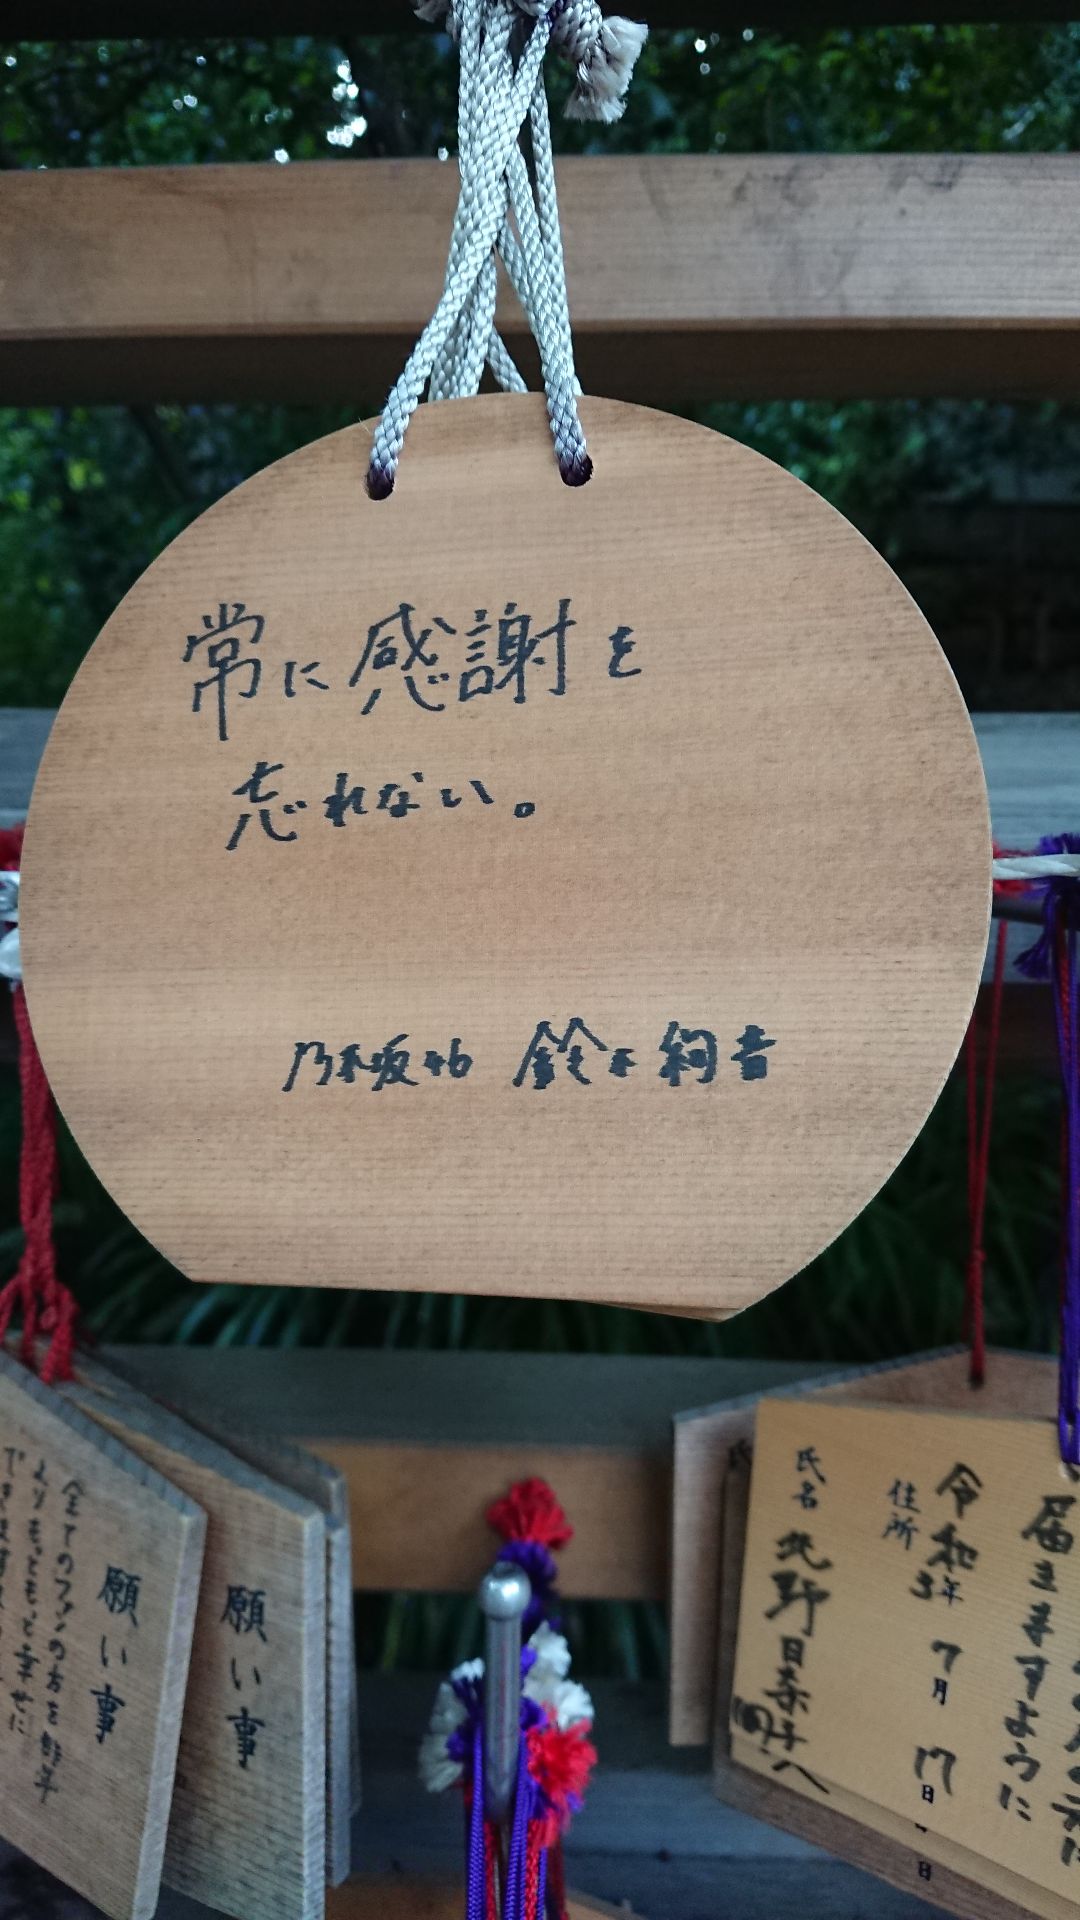 常に感謝を
忘れない。
乃木坂46 鈴木絢音
願い事
全てのファンの方を昨年
よりもっともっと幸せに
願い事
届きますように
令和3年 7月 17日
住所
氏名 北野日奈子
日